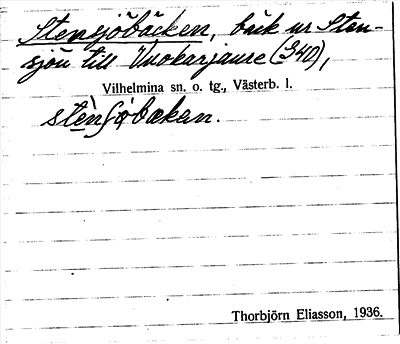 Stensjöbäcken, bäck ur Sten-
sjön till Vuokarjaure (340),
Vilhelmina sn. o. tg., Västerb. l.
Thorbjörn Eliasson, 1936.